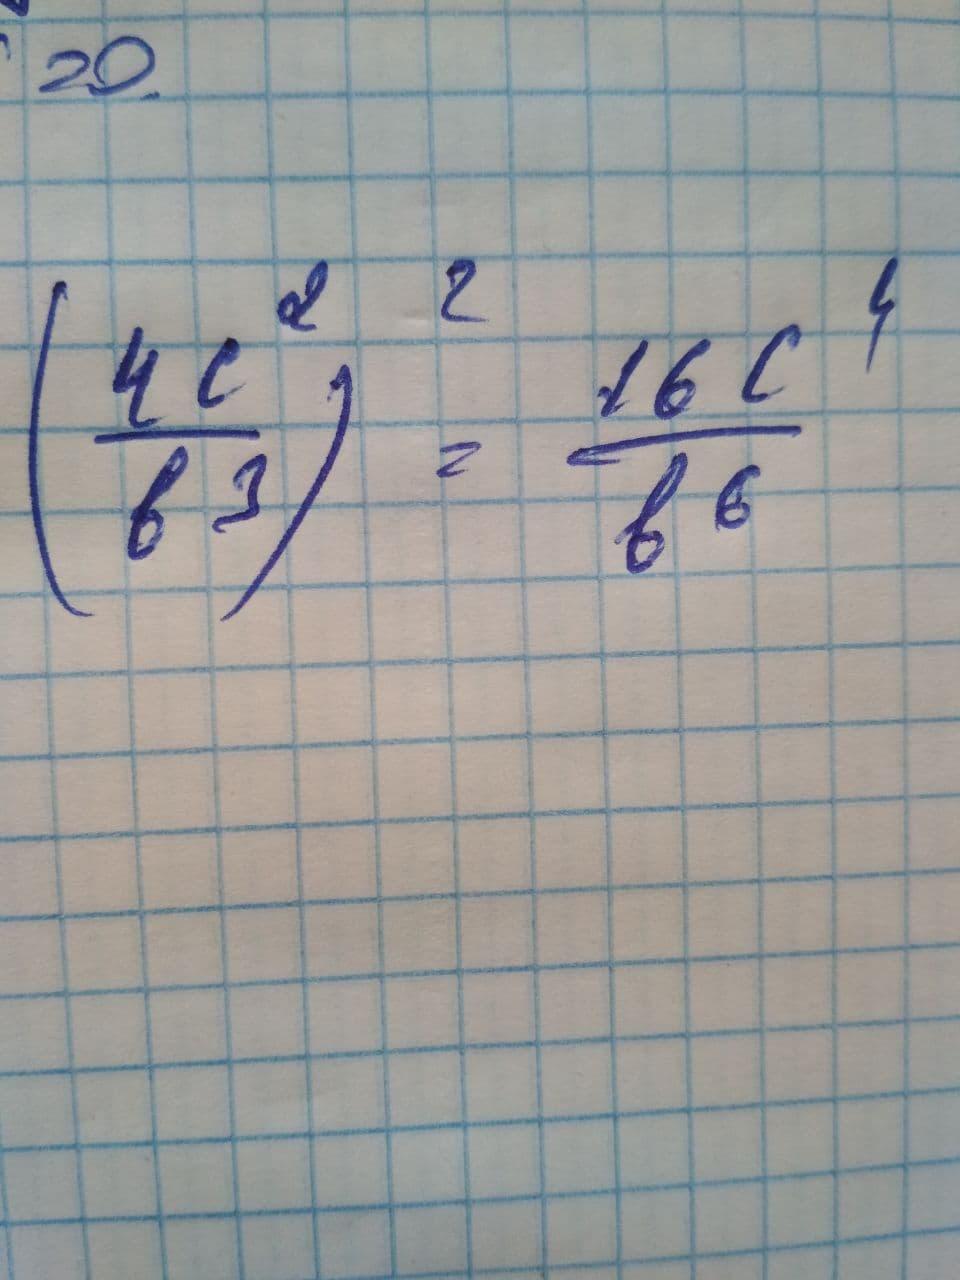 20.
(4c²/b³)² = 16c⁴/b⁶